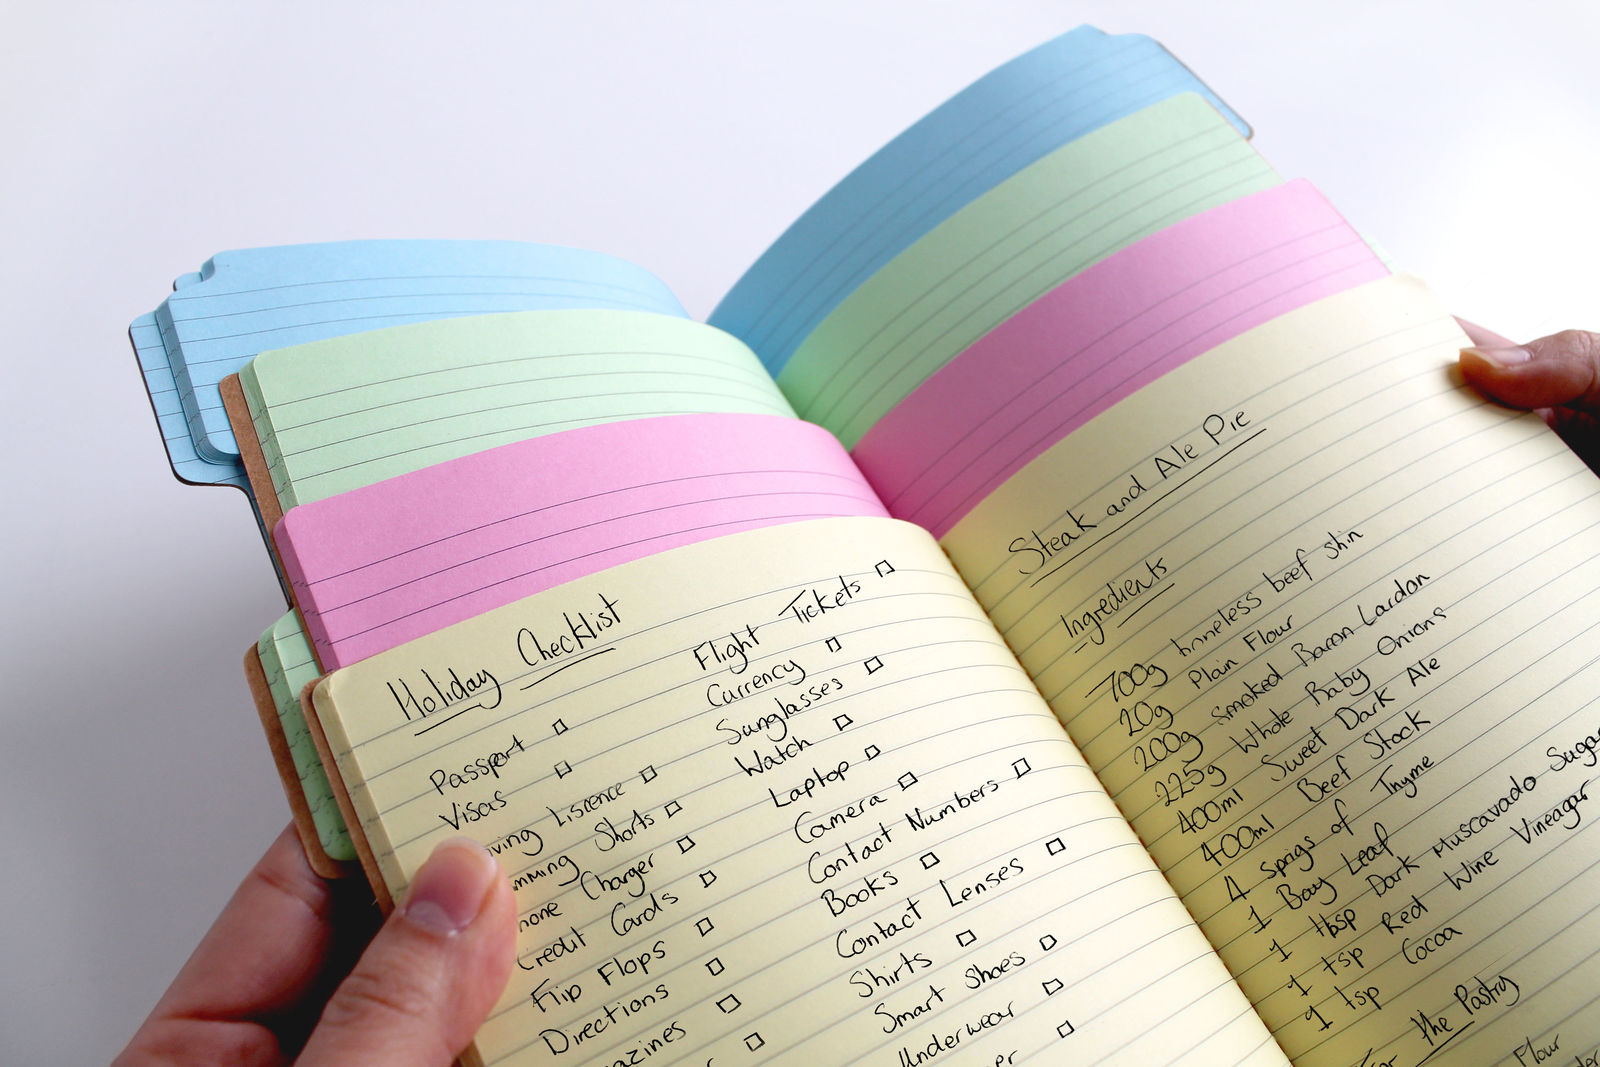 Holiday Checklist
Passport
Visas
iving Liscence
mming Shorts
hone Charger
Credit Cards
Flip Flops
Directions
azines
Flight Tickets
Currency
Sunglasses
Watch
Laptop
Camera
Contact Numbers
Books
Contact Lenses
Shirts
Smart Shoes
Underwear
Steak and Ale Pie
Ingredients
700g boneless beef shin
20g Plain Flour
200g Smoked Bacon Lardon
225g Whole Baby Onions
400ml Sweet Dark Ale
400ml Beef Stock
4 sprigs of Thyme
1 Bay Leaf
1 tbsp Dark Muscavado Sugar
1 tsp Red Wine Vineagar
1 tsp Cocoa
For the Pastry
Flour